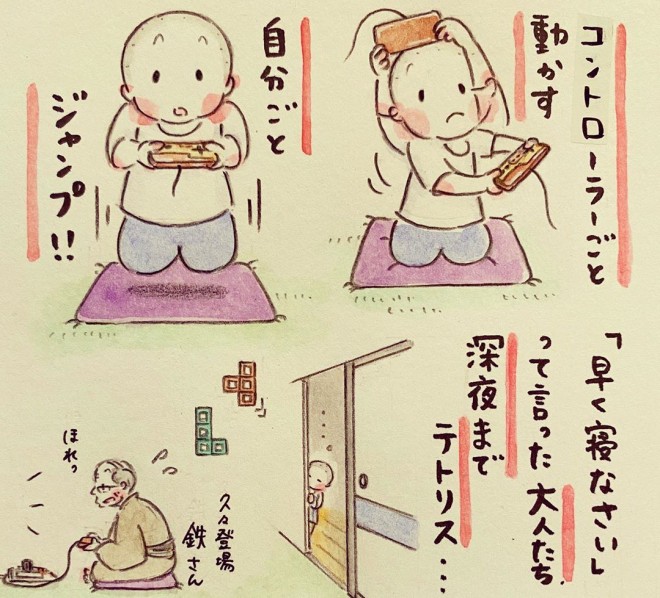 コントローラーごと
動かす
自分ごと
ジャンプ!!
「早く寝なさい」
って言った大人たち、
深夜まで
テトリス・・・
ほれっ
久々登場
鉄さん